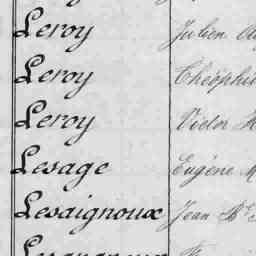 Leroy Julien
Leroy Théophile
Leroy Victor
Lesage Eugène
Lesaignoux Jean Bte